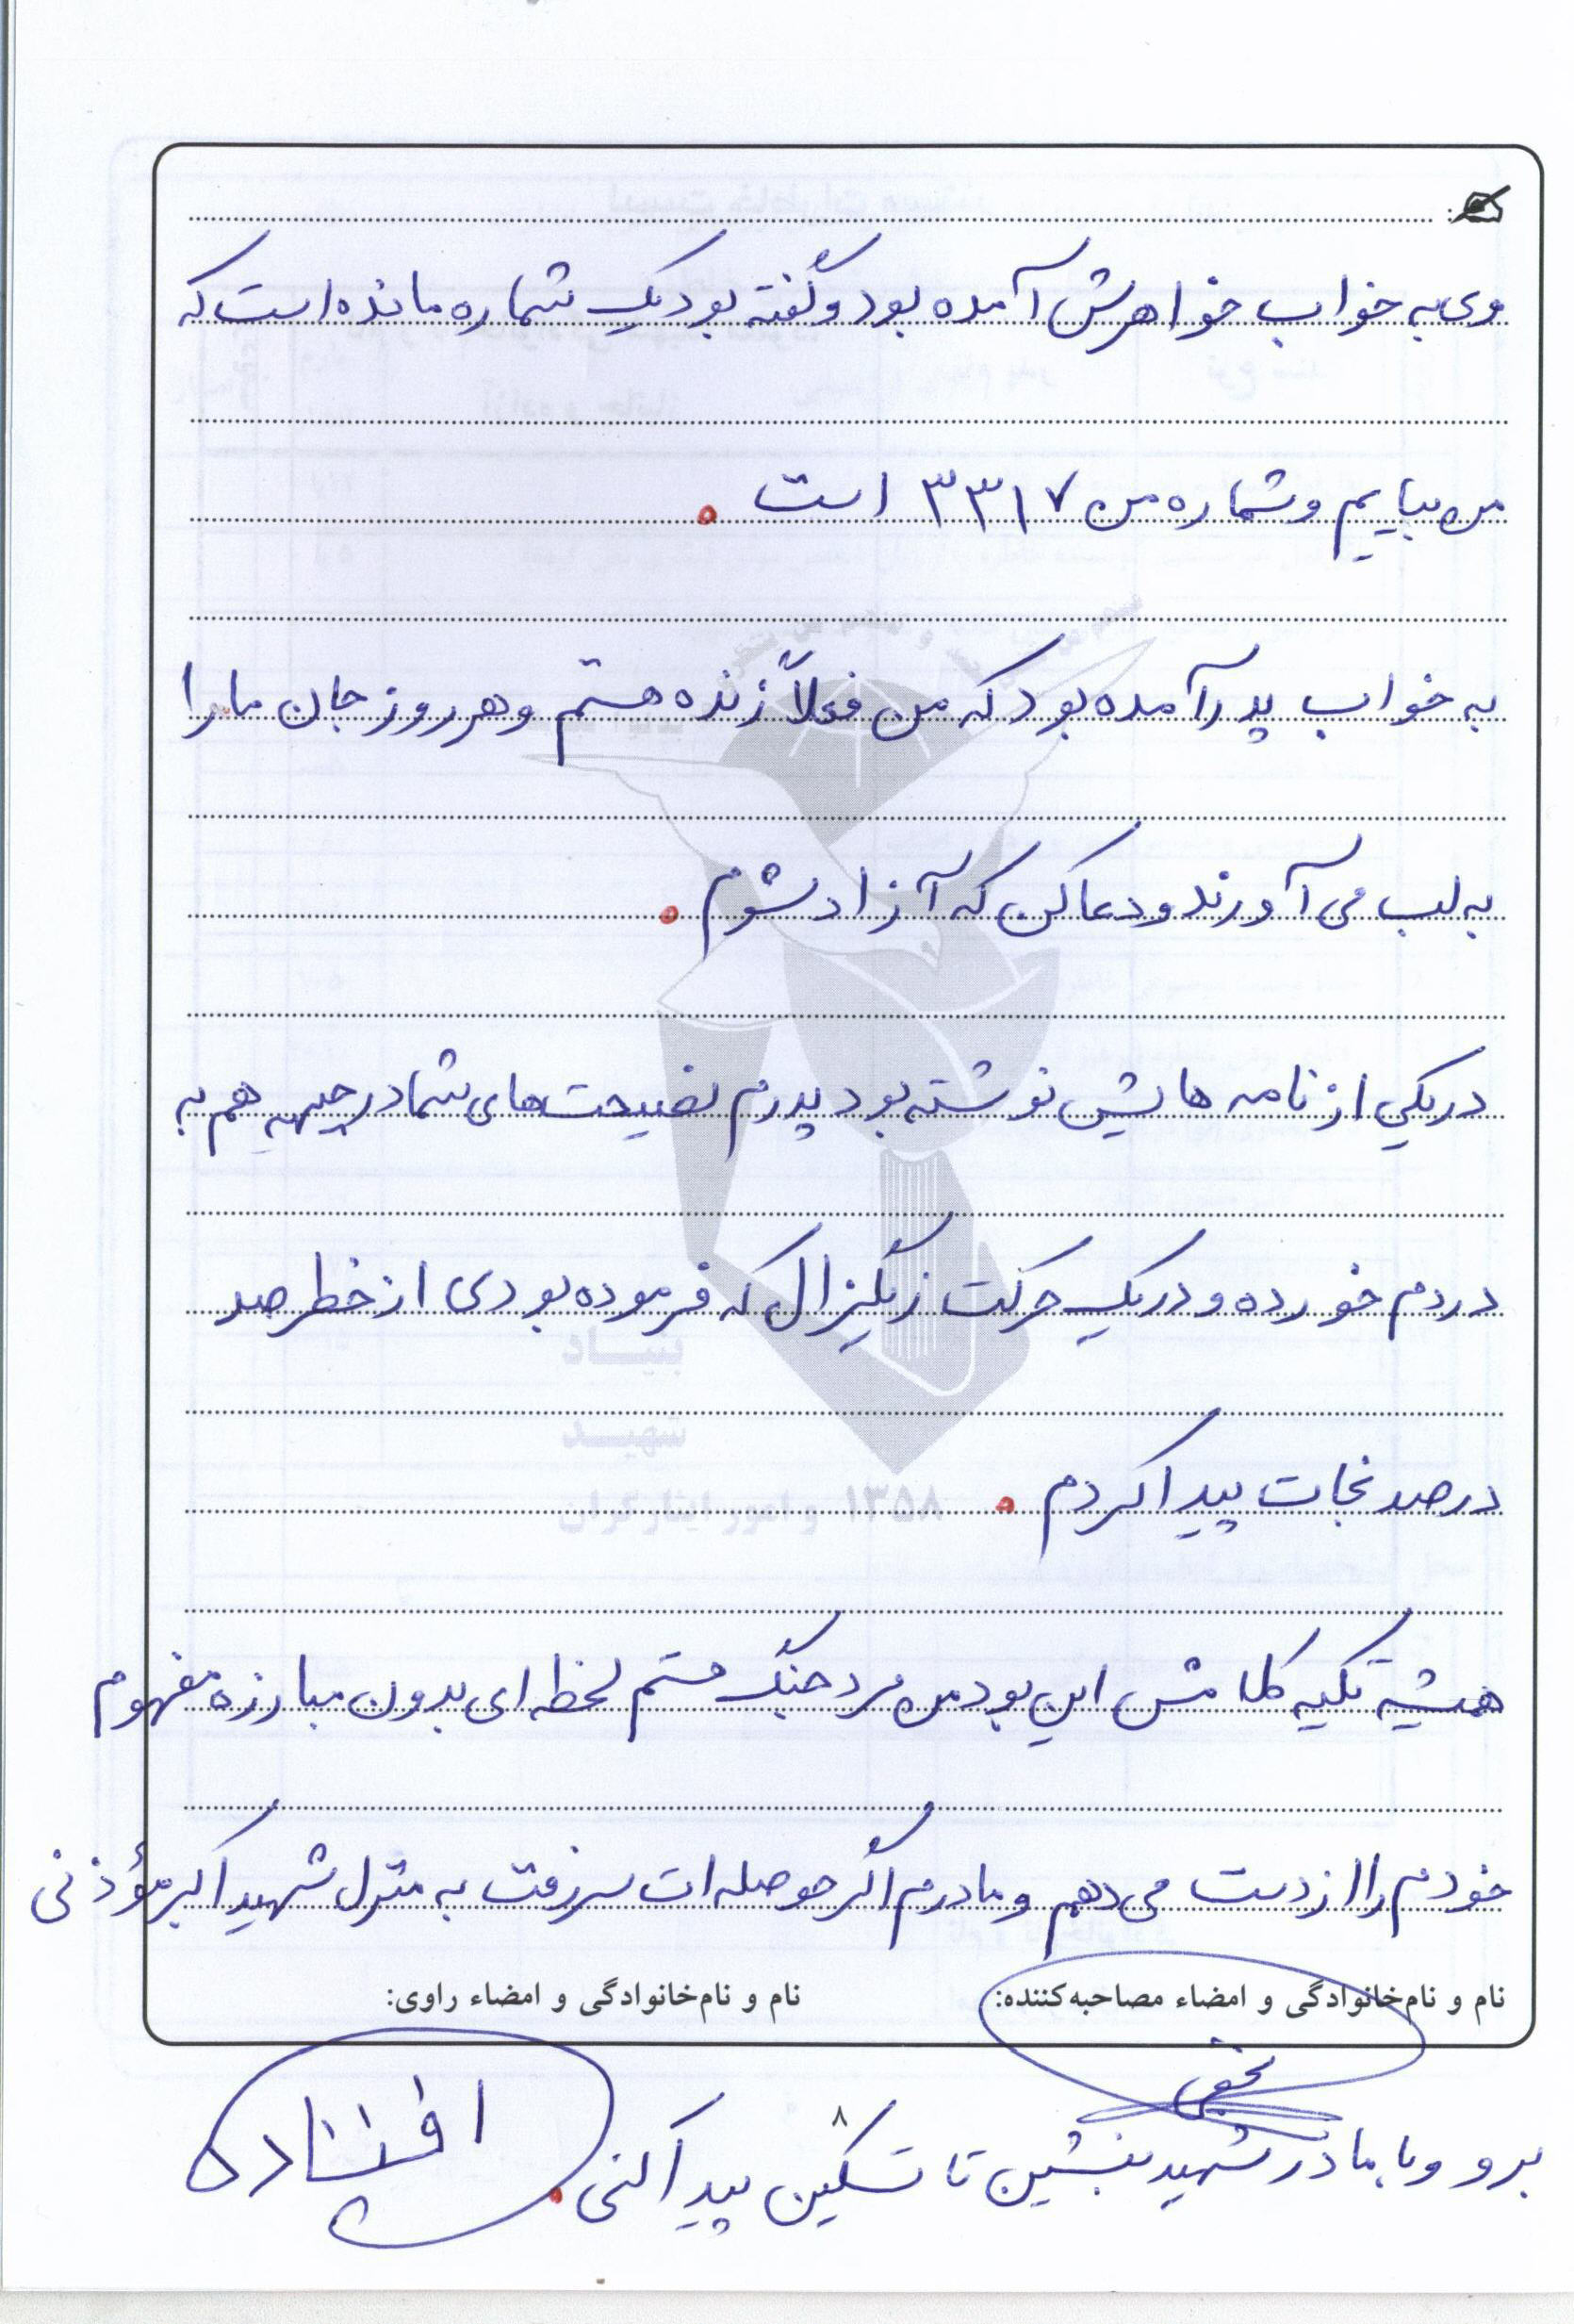 وی به خواب خواهرش آمده بود و گفته بود یک شماره مانده است که
من بیایم و شماره من ۳۳۱۷ است .
به خواب پدر آمده بود که من فعلاً زنده هستم و هر روز جان ما را
به لب می آورند و دعا کن که آزاد شوم .
در یکی از نامه هایش نوشته بود پدرم نصیحت های شما در جبهه هم به
دردم خورده و در یک حرکت زیگزال که فرموده بودی از خطر صد
در صد نجات پیدا کردم .
همیشه تکیه کلامش این بود من مرد جنگ هستم لحظه ای بدون مبارزه مفهوم
خودم را از دست می دهم و مادرم اگر حوصله ات سر رفت به منزل شهید اکبر مؤذنی
نام و نام‌خانوادگی و امضاء مصاحبه‌کننده: نام و نام‌خانوادگی و امضاء راوی:
برو و با مادر شهید بنشین تا تسکین پیدا کنی .
بنیاد
شهید
و امور ایثارگران ۱۳۵۸